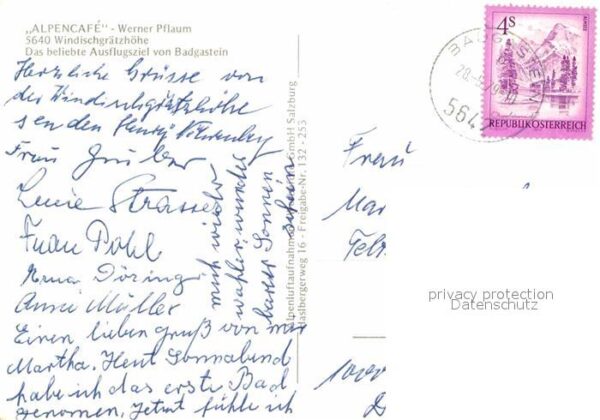 „ALPENCAFÉ" - Werner Pflaum
5640 Windischgrätzhöhe
Das beliebte Ausflugsziel von Badgastein
Herzliche Grüsse von
der Windischgrätzhöhe
senden
Frau Gruber
Lucie Strasse
Frau Pohl
Erna Döring
Anni Müller
Einen lieben Gruß von mir
Martha. Heut Sonnabend
habe ich das erste Bad
genomen, Jetzt fühle ich
mich wieder
wohler, wunder
barer Sonnen
schein
Alpenluftaufnahme GmbH Salzburg
16 - Freigabe-Nr. 132 - 253
4S
REPUBLIK ÖSTERREICH
BADGASTEIN
5640
Frau
Mar
privacy protection
Datenschutz